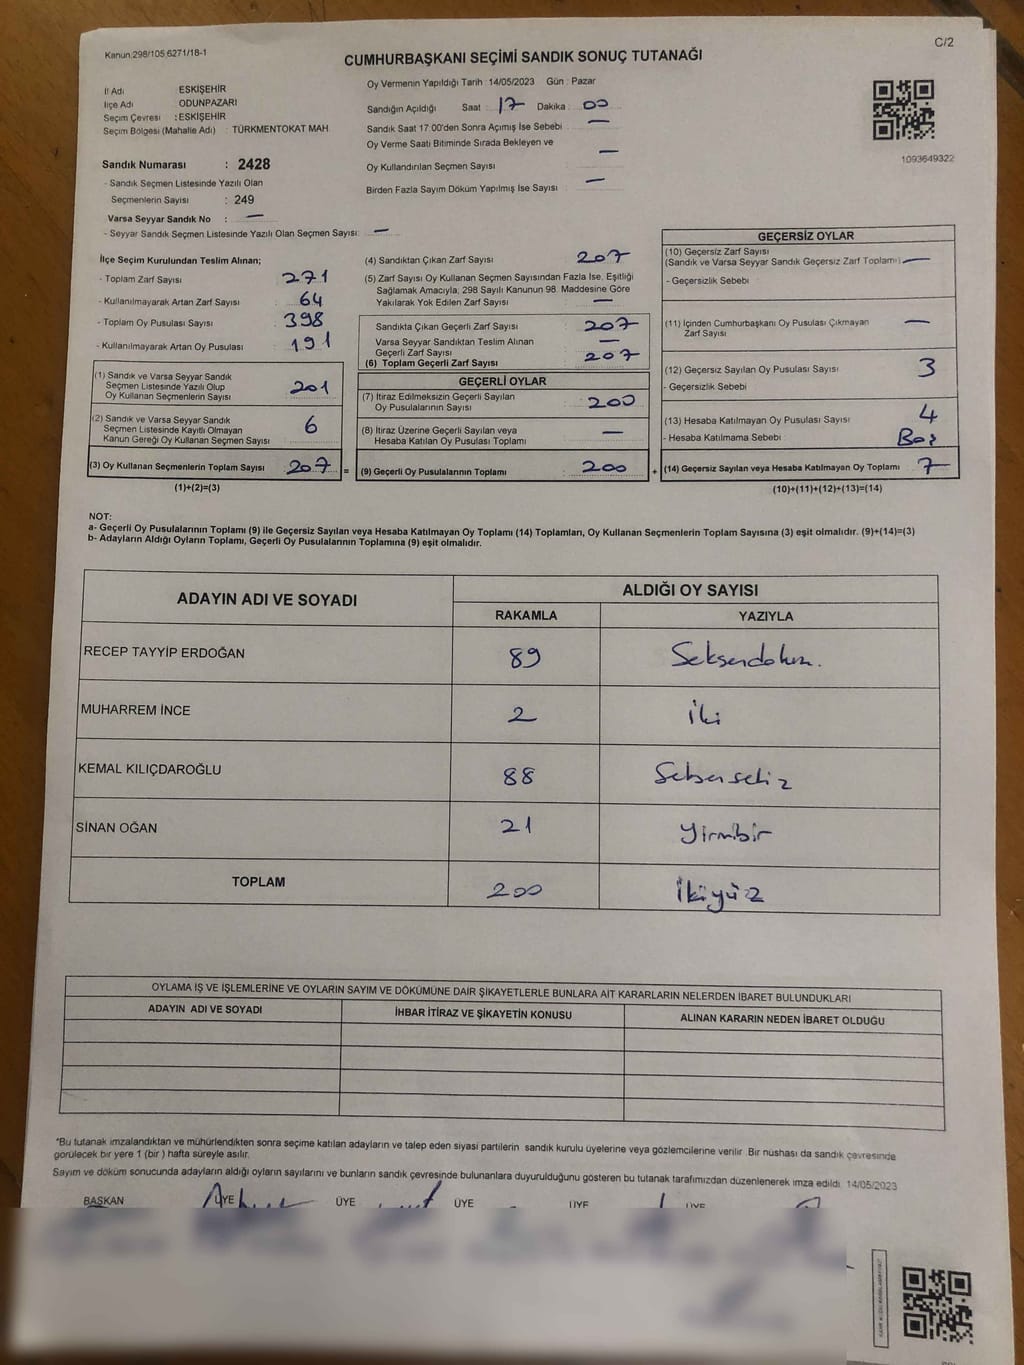 Kanun:298/105,6271/18-1
C/2
CUMHURBAŞKANI SEÇİMİ SANDIK SONUÇ TUTANAĞI
İl Adı : ESKİŞEHİR
İlçe Adı : ODUNPAZARI
Seçim Çevresi : ESKİŞEHİR
Seçim Bölgesi (Mahalle Adı) : TÜRKMENTOKAT MAH
Sandık Numarası : 2428
- Sandık Seçmen Listesinde Yazılı Olan
Seçmenlerin Sayısı : 249
Varsa Seyyar Sandık No : —
- Seyyar Sandık Seçmen Listesinde Yazılı Olan Seçmen Sayısı: —
Oy Vermenin Yapıldığı Tarih :14/05/2023 Gün : Pazar
Sandığın Açıldığı Saat : 17 Dakika : 00
Sandık Saat 17:00'den Sonra Açımış İse Sebebi : —
Oy Verme Saati Bitiminde Sırada Bekleyen ve
Oy Kullandırılan Seçmen Sayısı : —
Birden Fazla Sayım Döküm Yapılmış İse Sayısı : —
1093649322
İlçe Seçim Kurulundan Teslim Alınan;
- Toplam Zarf Sayısı : 271
- Kullanılmayarak Artan Zarf Sayısı : 64
- Toplam Oy Pusulası Sayısı : 398
- Kullanılmayarak Artan Oy Pusulası : 191
(1) Sandık ve Varsa Seyyar Sandık
Seçmen Listesinde Yazılı Olup
Oy Kullanan Seçmenlerin Sayısı : 201
(2) Sandık ve Varsa Seyyar Sandık
Seçmen Listesinde Kayıtlı Olmayan
Kanun Gereği Oy Kullanan Seçmen Sayısı : 6
(3) Oy Kullanan Seçmenlerin Toplam Sayısı : 207 =
(1)+(2)=(3)
(4) Sandıktan Çıkan Zarf Sayısı : 207
(5) Zarf Sayısı Oy Kullanan Seçmen Sayısından Fazla İse, Eşitliği
Sağlamak Amacıyla; 298 Sayılı Kanunun 98. Maddesine Göre
Yakılarak Yok Edilen Zarf Sayısı : —
Sandıkta Çıkan Geçerli Zarf Sayısı : 207
Varsa Seyyar Sandıktan Teslim Alınan
Geçerli Zarf Sayısı : —
(6) Toplam Geçerli Zarf Sayısı : 207
GEÇERLİ OYLAR
(7) İtiraz Edilmeksizin Geçerli Sayılan
Oy Pusulalarının Sayısı : 200
(8) İtiraz Üzerine Geçerli Sayılan veya
Hesaba Katılan Oy Pusulası Toplamı : —
(9) Geçerli Oy Pusulalarının Toplamı : 200 +
GEÇERSİZ OYLAR
(10) Geçersiz Zarf Sayısı
(Sandık ve Varsa Seyyar Sandık Geçersiz Zarf Toplamı) —
- Geçersizlik Sebebi
(11) İçinden Cumhurbaşkanı Oy Pusulası Çıkmayan
Zarf Sayısı —
(12) Geçersiz Sayılan Oy Pusulası Sayısı : 3
- Geçersizlik Sebebi
(13) Hesaba Katılmayan Oy Pusulası Sayısı : 4
- Hesaba Katılmama Sebebi : Boş
(14) Geçersiz Sayılan veya Hesaba Katılmayan Oy Toplamı : 7
(10)+(11)+(12)+(13)=(14)
NOT:
a- Geçerli Oy Pusulalarının Toplamı (9) ile Geçersiz Sayılan veya Hesaba Katılmayan Oy Toplamı (14) Toplamları, Oy Kullanan Seçmenlerin Toplam Sayısına (3) eşit olmalıdır. (9)+(14)=(3)
b- Adayların Aldığı Oyların Toplamı, Geçerli Oy Pusulalarının Toplamına (9) eşit olmalıdır.
ADAYIN ADI VE SOYADI ALDIĞI OY SAYISI
RAKAMLA YAZIYLA
RECEP TAYYİP ERDOĞAN 89 Seksendokuz.
MUHARREM İNCE 2 İki
KEMAL KILIÇDAROĞLU 88 Seksensekiz
SİNAN OĞAN 21 Yirmibir
TOPLAM 200 İkiyüz
OYLAMA İŞ VE İŞLEMLERİNE VE OYLARIN SAYIM VE DÖKÜMÜNE DAİR ŞİKAYETLERLE BUNLARA AİT KARARLARIN NELERDEN İBARET BULUNDUKLARI
ADAYIN ADI VE SOYADI İHBAR İTİRAZ VE ŞİKAYETİN KONUSU ALINAN KARARIN NEDEN İBARET OLDUĞU
*Bu tutanak imzalandıktan ve mühürlendikten sonra seçime katılan adayların ve talep eden siyasi partilerin sandık kurulu üyelerine veya gözlemcilerine verilir. Bir nüshası da sandık çevresinde
görülecek bir yere 1 (bir ) hafta süreyle asılır.
Sayım ve döküm sonucunda adayların aldığı oyların sayılarını ve bunların sandık çevresinde bulunanlara duyurulduğunu gösteren bu tutanak tarafımızdan düzenlenerek imza edildi. 14/05/2023
BAŞKAN ÜYE ÜYE ÜYE ÜYE ÜYE